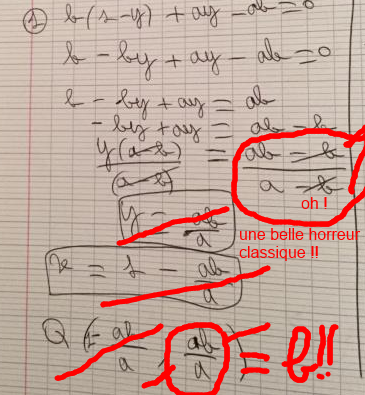 ① b(1-y) + ay - ab = 0
b - by + ay - ab = 0
b - by + ay = ab
- by + ay = ab - b
y(a-b) / (a-b) = ab - b / a - b
oh !
y = ab / a
une belle horreur
classique !!
x = 1 - ab / a
Q (1 - ab / a , ab / a) = b!!